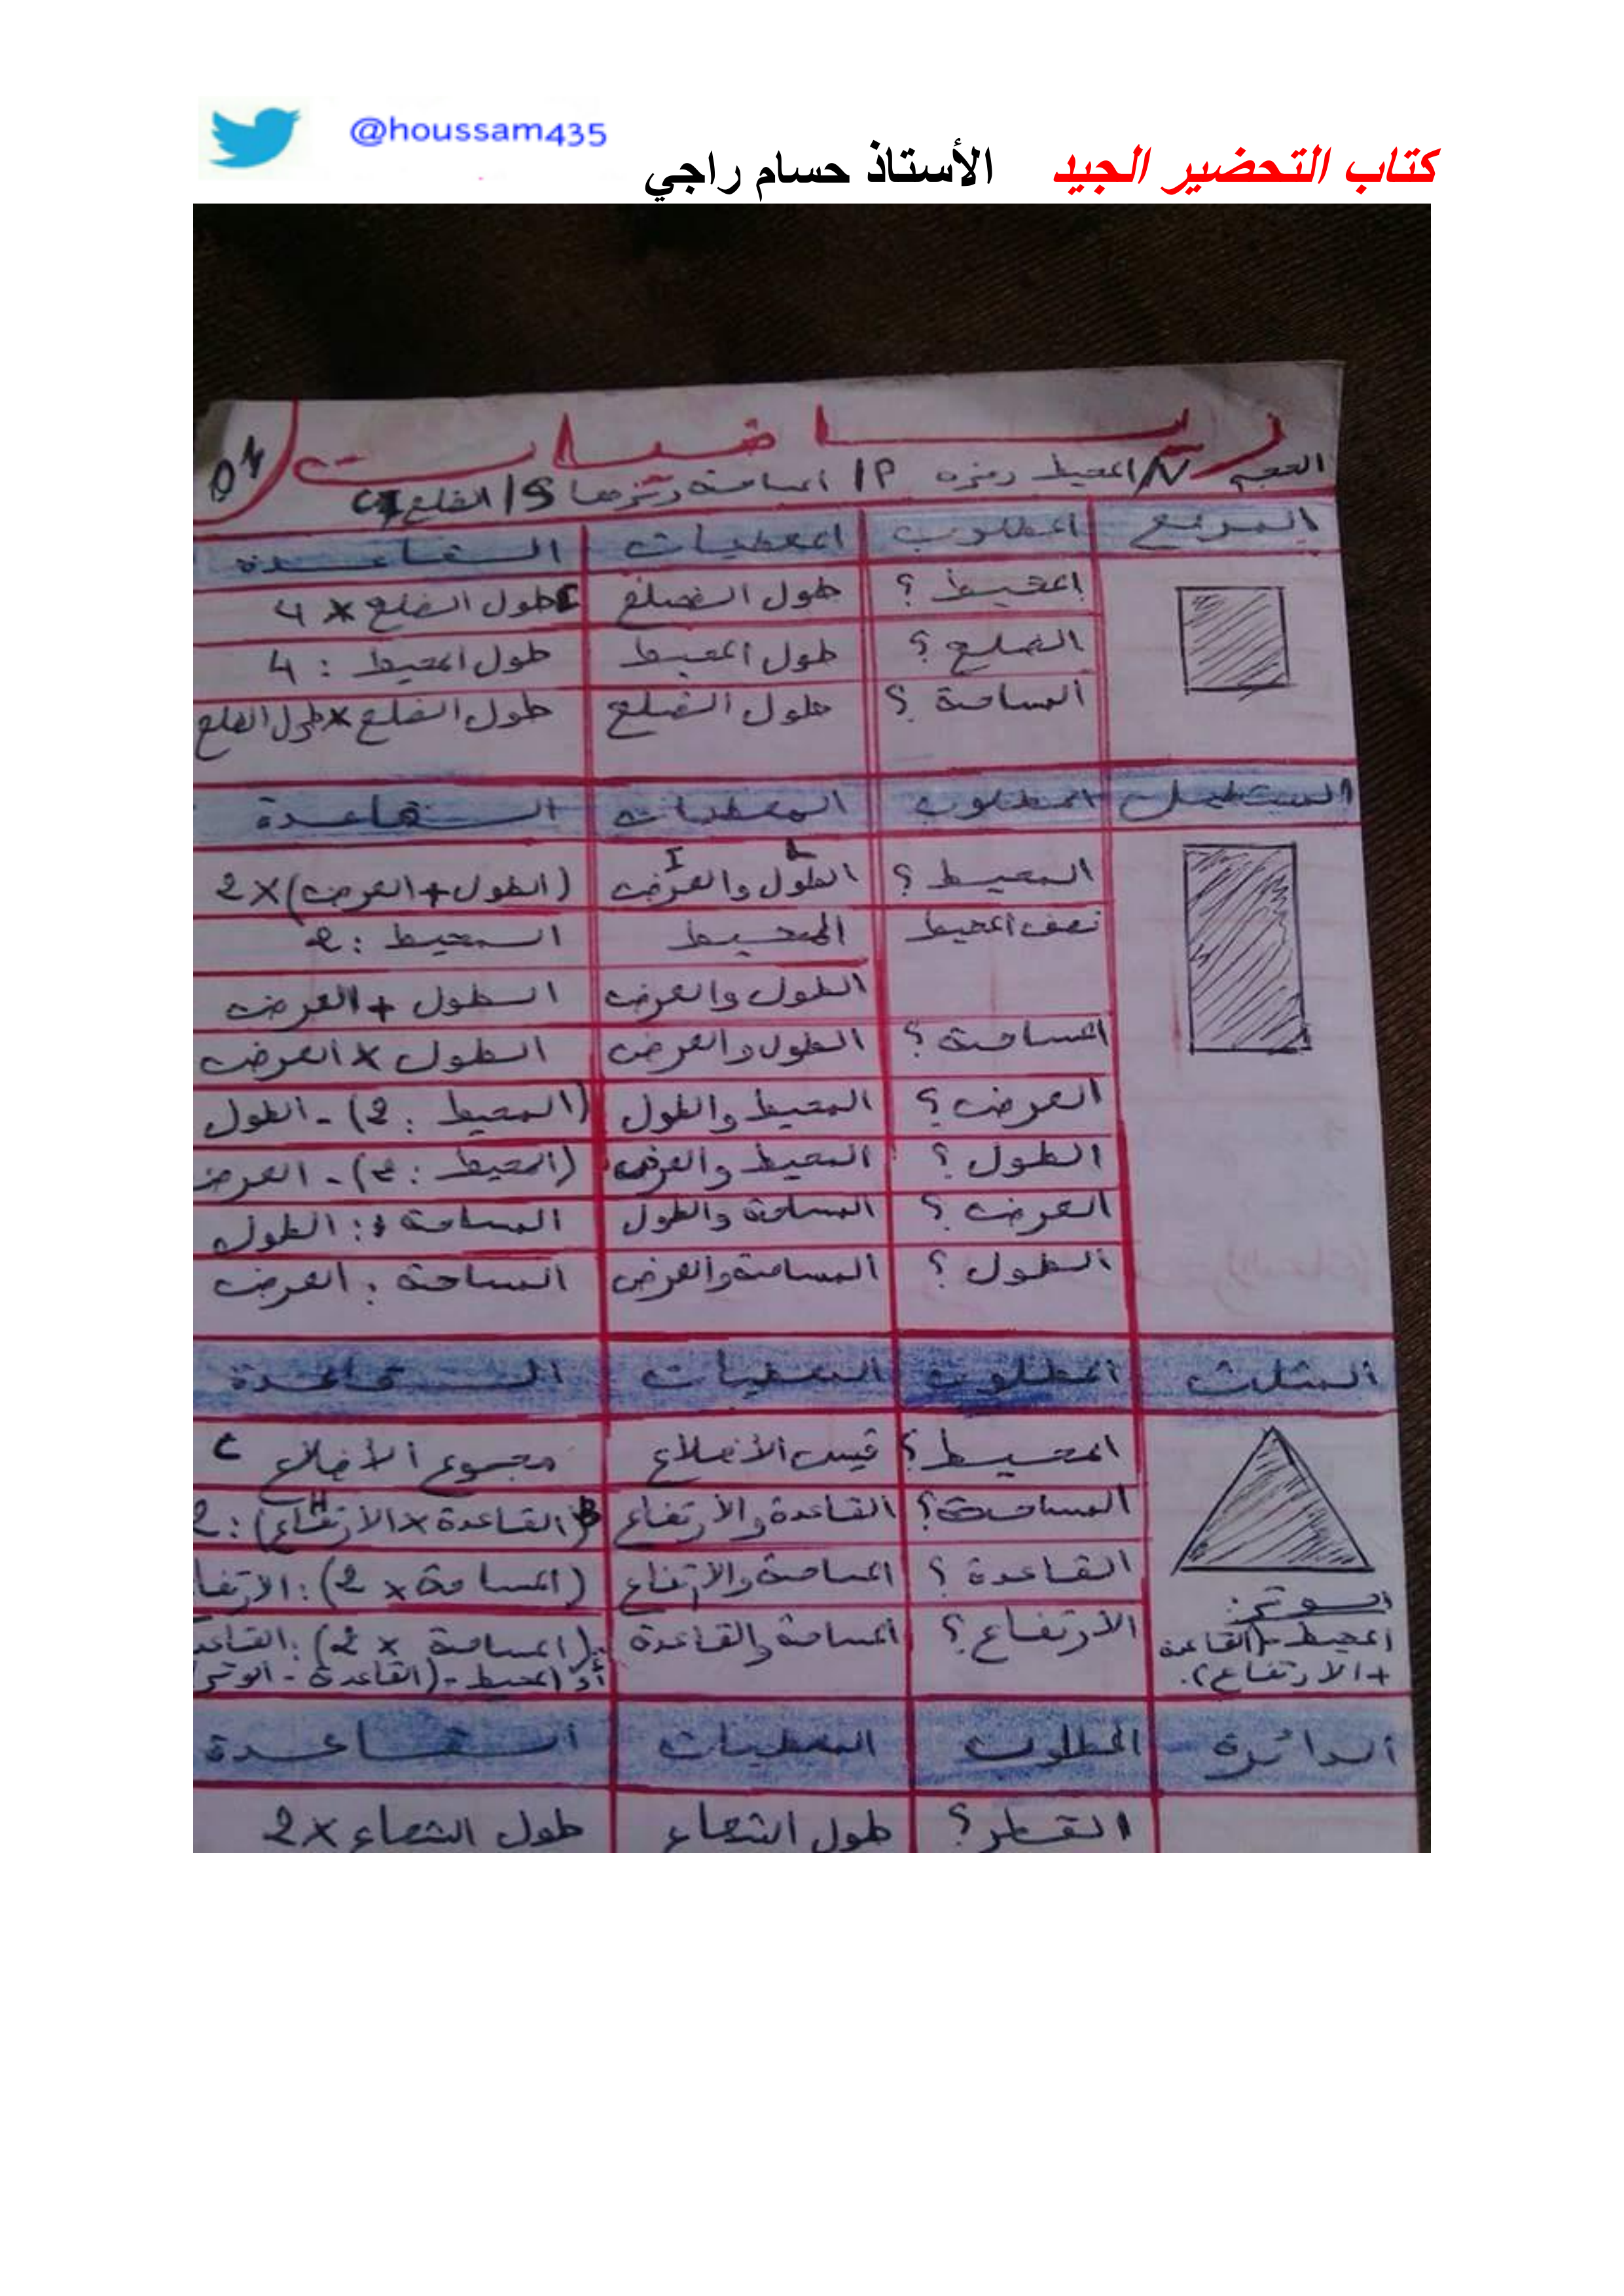 @houssam435
كتاب التحضير الجيد الأستاذ حسام راجي
رياضيات
01
الحجم V/ المحيط رمزه P/ المساحة رمزها S/ الضلع C
المربع المطلوب المعطيات القاعدة
المحيط ؟ طول الضلع طول الضلع × 4
الضلع ؟ طول المحيط طول المحيط : 4
المساحة ؟ طول الضلع طول الضلع × طول الضلع
المستطيل المطلوب المعطيات القاعدة
L I
المحيط ؟ الطول والعرض (الطول + العرض) × 2
نصف المحيط المحيط المحيط : 2
الطول والعرض الطول + العرض
المساحة ؟ الطول والعرض الطول × العرض
العرض ؟ المحيط والطول (المحيط : 2) - الطول
الطول ؟ المحيط والعرض (المحيط : 2) - العرض
العرض ؟ المساحة والطول المساحة : الطول
الطول ؟ المساحة والعرض المساحة : العرض
المثلث المطلوب المعطيات القاعدة
المحيط ؟ قيس الأضلاع مجموع الأضلاع C
المساحة ؟ القاعدة والارتفاع B (القاعدة × الارتفاع H) : 2
القاعدة ؟ المساحة والارتفاع (المساحة × 2) : الارتفا
الارتفاع ؟ المساحة والقاعدة (المساحة × 2) : القاعد
أو المحيط - (القاعدة - الوتر
الوتر :
المحيط - (القاعدة
+ الارتفاع).
الدائرة المطلوب المعطيات القاعدة
القطر ؟ طول الشعاع طول الشعاع × 2